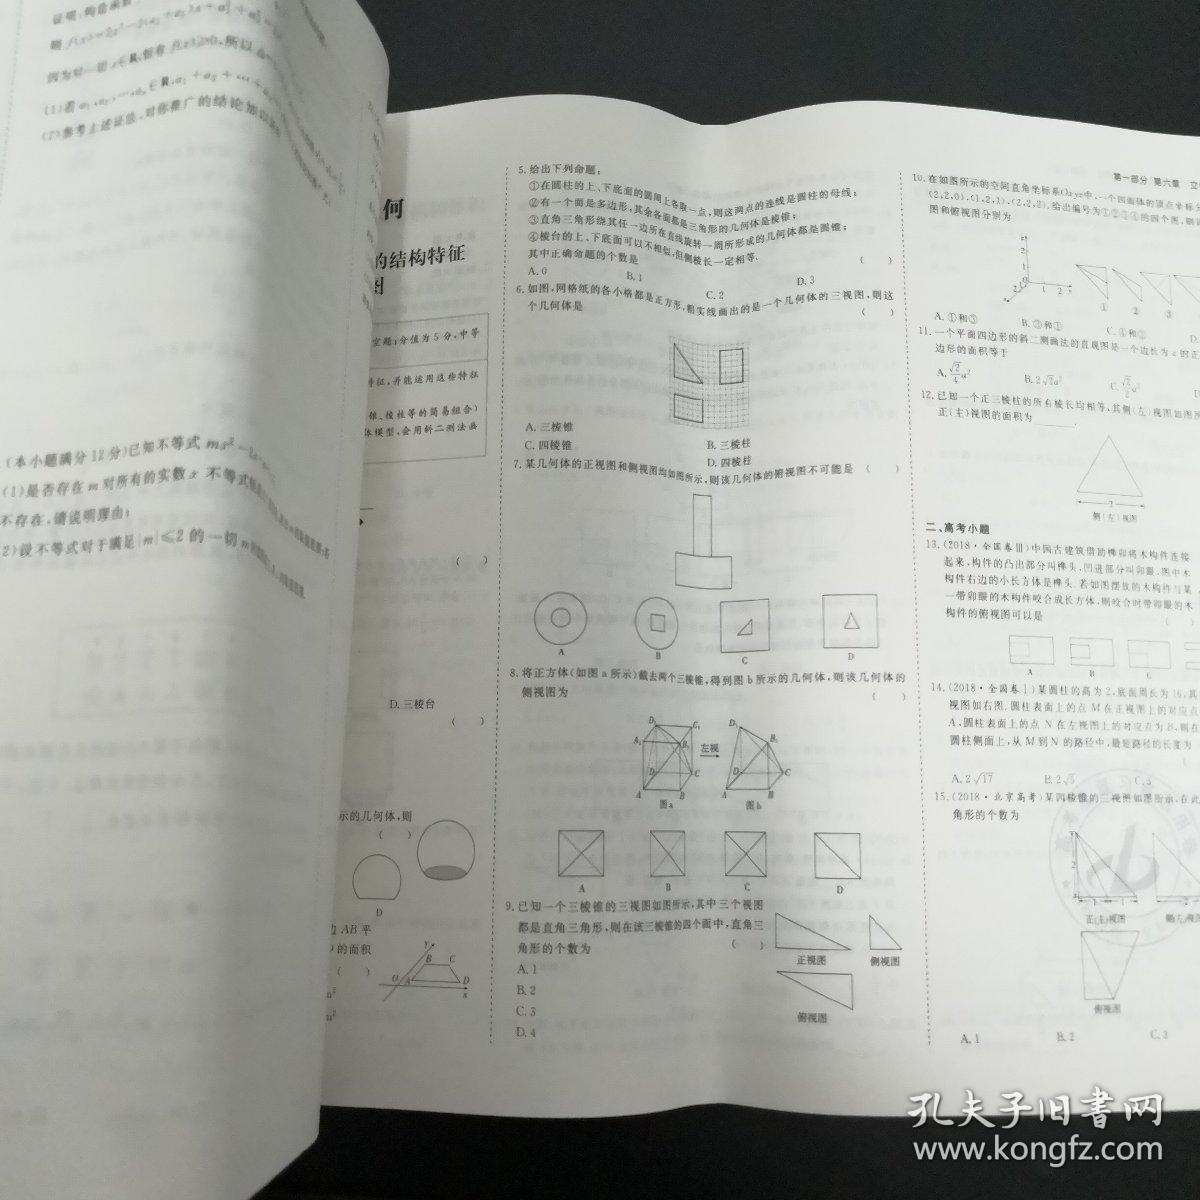 证明:构造函数
(本小题满分12分)已知不等式
(1)是否存在m对所有的实数x 不等式
不存在,请说明理由;
2)设不等式对于满足|m|≤2的一切m
何
的结构特征
图
空题;分值为5分,中等
特征,并能运用这些特征
锥、棱柱等的简易组合)
体模型,会用斜二测法画
( )
D.三棱台
( )
示的几何体,则
( )
D
边AB平
的面积
( )
y B C
O A D x
5.给出下列命题:
①在圆柱的上、下底面的圆周上各取一点,则这两点的连线是圆柱的母线;
②有一个面是多边形,其余各面都是三角形的几何体是棱锥;
③直角三角形绕其任一边所在直线旋转一周所形成的几何体都是圆锥;
④棱台的上、下底面可以不相似,但侧棱长一定相等.
其中正确命题的个数是 ( )
A.0 B.1 C.2 D.3
6.如图,网格纸的各小格都是正方形,粗实线画出的是一个几何体的三视图,则这
个几何体是 ( )
A.三棱锥 B.三棱柱
C.四棱锥 D.四棱柱
7.某几何体的正视图和侧视图均如图所示,则该几何体的俯视图不可能是 ( )
A B C D
8.将正方体(如图a所示)截去两个三棱锥,得到图b所示的几何体,则该几何体的
侧视图为 ( )
D₁ C₁ A₁ B₁ D C A B
左视
D₁ B₁ D C A B
图a 图b
A B C D
9.已知一个三棱锥的三视图如图所示,其中三个视图
都是直角三角形,则在该三棱锥的四个面中,直角三
角形的个数为 ( )
A.1
B.2
C.3
D.4
正视图 侧视图
俯视图
第一部分 第六章
10.在如图所示的空间直角坐标系Oxyz中,一个四面体的顶点坐标分
(2,2,0),(1,2,1),(2,2,2).给出编号为①②③④的四个图,则
图和俯视图分别为
① ② ③
A.①和③ B.③和① C.④和③ D.
11.一个平面四边形的斜二测画法的直观图是一个边长为a的正
边形的面积等于
A.√2/4 a² B.2√2a² C.√2/2 a²
12.已知一个正三棱柱的所有棱长均相等,其侧(左)视图如图所
正(主)视图的面积为
2
侧(左)视图
二、高考小题
13.(2018·全国卷Ⅲ)中国古建筑借助榫卯将木构件连接
起来,构件的凸出部分叫榫头,凹进部分叫卯眼,图中木
构件右边的小长方体是榫头.若如图摆放的木构件与某
一带卯眼的木构件咬合成长方体,则咬合时带卯眼的木
构件的俯视图可以是 ( )
A B C
14.(2018·全国卷Ⅰ)某圆柱的高为2,底面周长为16,其
视图如右图.圆柱表面上的点M在正视图上的对应点
A,圆柱表面上的点N在左视图上的对应点为B,则在
圆柱侧面上,从M到N的路径中,最短路径的长度为
A.2√17 B.2√5 C.3
15.(2018·北京高考)某四棱锥的三视图如图所示,在此
角形的个数为
正(主)视图 侧(左)视
俯视图
A.1 B.2 C.3
孔夫子旧书网
www.kongfz.com